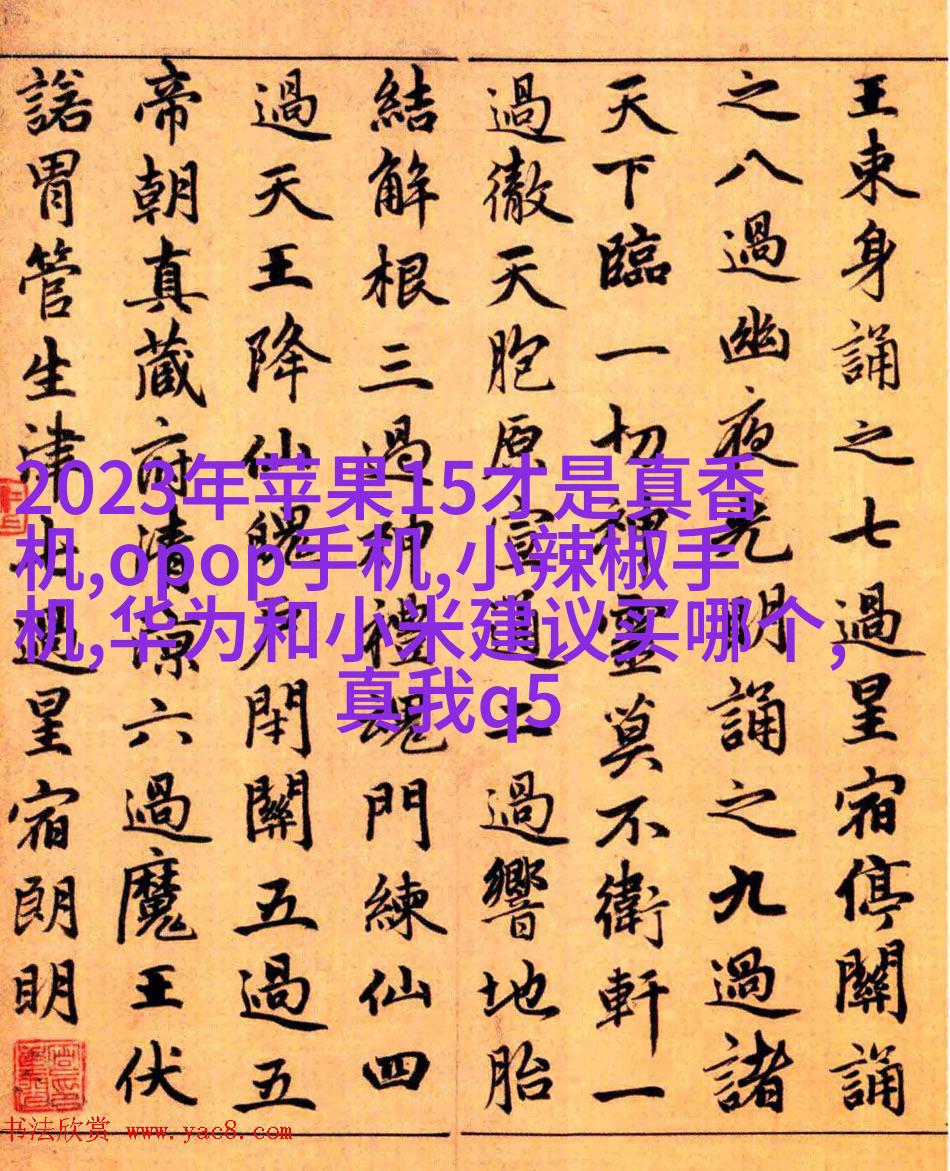 王束身誦之七過星宿停關誦
之八過幽夜光明誦之九過諸
天下臨一切神靈莫不衛軒一
過徹天胞原宣通二過響地胎
結解根三過神禮魂門練仙四
過天王降仙魄戶閇關五過五
帝朝真藏府清涼六過魔王伏
諾胃管生津七過星宿朗明
2023年苹果15才是真香
机,opop手机,小辣椒手
机,华为和小米建议买哪个,
真我q5
书法欣赏 www.yac8.com